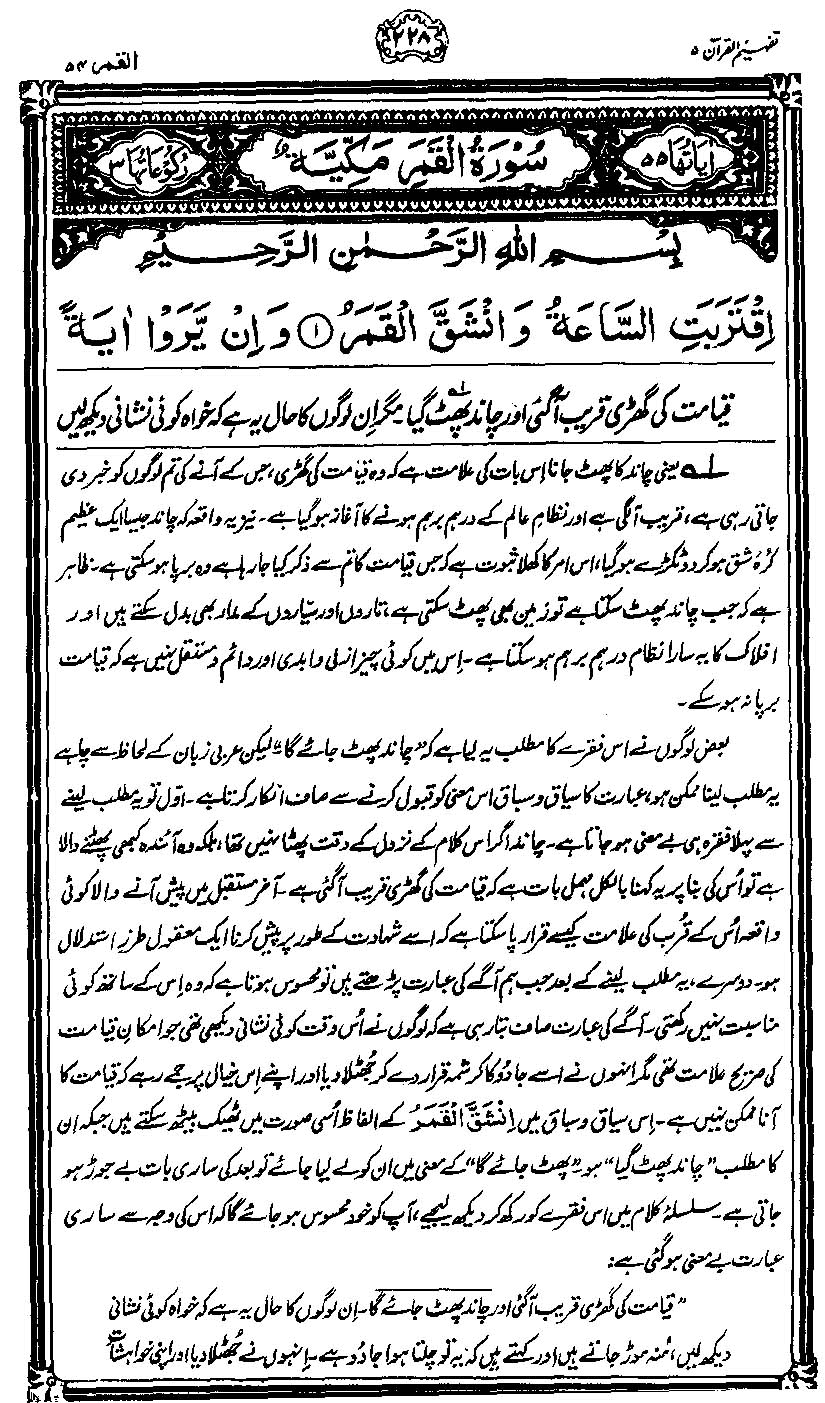 تفہیم القرآن ۵
۲۲۸
القمر ۵۴
اٰیَاتُهَا ۵۵
سُوْرَةُ الْقَمَرِ مَكِّيَّةٌ
رُكُوْعَاتُهَا ۳
بِسْمِ اللهِ الرَّحْمٰنِ الرَّحِيْمِ
اِقْتَرَبَتِ السَّاعَةُ وَانْشَقَّ الْقَمَرُ ۱ وَاِنْ يَّرَوْا اٰيَةً
قیامت کی گھڑی قریب آگئی اور چاند پھٹ گیا۱؎۔ مگر اِن لوگوں کا حال یہ ہے کہ خواہ کوئی نشانی دیکھ لیں
۱؎ یعنی چاند کا پھٹ جانا اِس بات کی علامت ہے کہ وہ قیامت کی گھڑی، جس کے آنے کی تم لوگوں کو خبر دی
جاتی رہی ہے، قریب آلگی ہے اور نظامِ عالم کے درہم برہم ہونے کا آغاز ہوگیا ہے۔ نیز یہ واقعہ کہ چاند جیسا ایک عظیم
کُرہ شق ہوکر دو ٹکڑے ہوگیا، اس امر کا کھلا ثبوت ہے کہ جس قیامت کا تم سے ذکر کیا جا رہا ہے وہ برپا ہوسکتی ہے۔ ظاہر
ہے کہ جب چاند پھٹ سکتا ہے تو زمین بھی پھٹ سکتی ہے، تاروں اور سیّاروں کے مدار بھی بدل سکتے ہیں اور
افلاک کا یہ سارا نظام درہم برہم ہو سکتا ہے۔ اِس میں کوئی چیز ازلی و ابدی اور دائم و مستقل نہیں ہے کہ قیامت
برپا نہ ہو سکے۔
بعض لوگوں نے اس فقرے کا مطلب یہ لیا ہے کہ ”چاند پھٹ جائے گا“۔ لیکن عربی زبان کے لحاظ سے چاہے
یہ مطلب لینا ممکن ہو، عبارت کا سیاق و سباق اس معنی کو قبول کرنے سے صاف انکار کرتا ہے۔ اوّل تو یہ مطلب لینے
سے پہلا فقرہ ہی بے معنی ہو جاتا ہے۔ چاند اگر اس کلام کے نزول کے وقت پھٹا نہیں تھا، بلکہ وہ آئندہ کبھی پھٹنے والا
ہے تو اُس کی بنا پر یہ کہنا بالکل مہمل بات ہے کہ قیامت کی گھڑی قریب آگئی ہے۔ آخر مستقبل میں پیش آنے والا کوئی
واقعہ اُس کے قُرب کی علامت کیسے قرار پا سکتا ہے کہ اسے شہادت کے طور پر پیش کرنا ایک معقول طرزِ استدلال
ہو۔ دوسرے، یہ مطلب لینے کے بعد جب ہم آگے کی عبارت پڑھتے ہیں تو محسوس ہوتا ہے کہ وہ اِس کے ساتھ کوئی
مناسبت نہیں رکھتی۔ آگے کی عبارت صاف بتا رہی ہے کہ لوگوں نے اُس وقت کوئی نشانی دیکھی تھی جو امکانِ قیامت
کی صریح علامت تھی مگر انہوں نے اسے جادُو کا کرشمہ قرار دے کر جُھٹلا دیا اور اپنے اِس خیال پر جمے رہے کہ قیامت کا
آنا ممکن نہیں ہے۔ اِس سیاق و سباق میں اِنْشَقَّ الْقَمَرُ کے الفاظ اُسی صورت میں ٹھیک بیٹھ سکتے ہیں جبکہ ان
کا مطلب ”چاند پھٹ گیا“ ہو۔ ”پھٹ جائے گا“ کے معنی میں ان کو لے لیا جائے تو بعد کی ساری بات بے جوڑ ہو
جاتی ہے۔ سلسلۂ کلام میں اس فقرے کو رکھ کر دیکھ لیجیے، آپ کو خود محسوس ہو جائے گا کہ اس کی وجہ سے ساری
عبارت بے معنی ہوگئی ہے:
”قیامت کی گھڑی قریب آگئی اور چاند پھٹ جائے گا۔ اِن لوگوں کا حال یہ ہے کہ خواہ کوئی نشانی
دیکھ لیں، مُنہ موڑ جاتے ہیں اور کہتے ہیں کہ یہ تو چلتا ہوا جادُو ہے۔ اِنہوں نے جُھٹلا دیا اور اپنی خواہشات